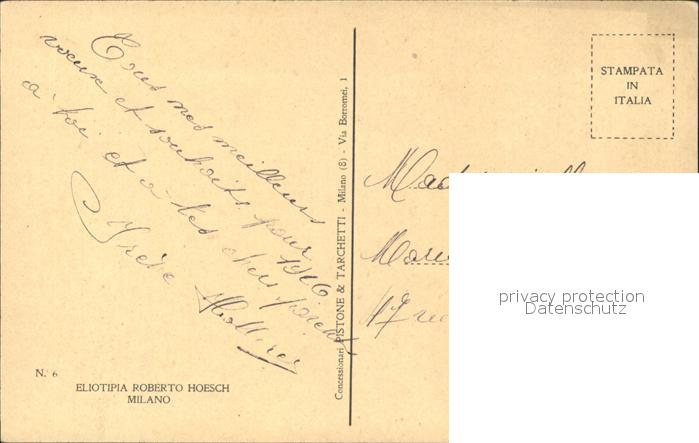 Tous nos meilleurs
voeux et souhaits pour 1916
à toi et à tes chers parents
Irène
N. 6
ELIOTIPIA ROBERTO HOESCH
MILANO
Concessionari PISTONE & TARCHETTI - Milano (8) - Via Borromei, 1
STAMPATA
IN
ITALIA
privacy protection
Datenschutz